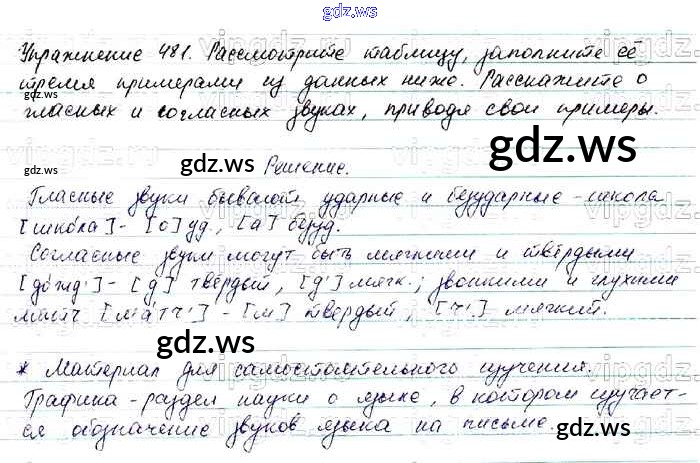 gdz.ws
Упражнение 481. Рассмотрите таблицу, заполните её
тремя примерами из данных ниже. Расскажите о
gdz.ws
гласных и согласных звуках, приводя свои примеры.
gdz.ws
gdz.ws
gdz.ws
Решение.
Гласные звуки бывают ударные и безударные - школа
[шко́ла] - [о] уд., [а] безуд.
Согласные звуки могут быть мягкими и твёрдыми
[до́жд'] - [д] твёрдый, [д'] мягк.; звонкими и глухими
матч [ма́тч'] - [м] твёрдый, [ч'] мягкий.
gdz.ws
* Материал для самостоятельного изучения.
gdz.ws
Графика - раздел науки о языке, в котором изучает-
ся обозначение звуков языка на письме.
gdz.ws